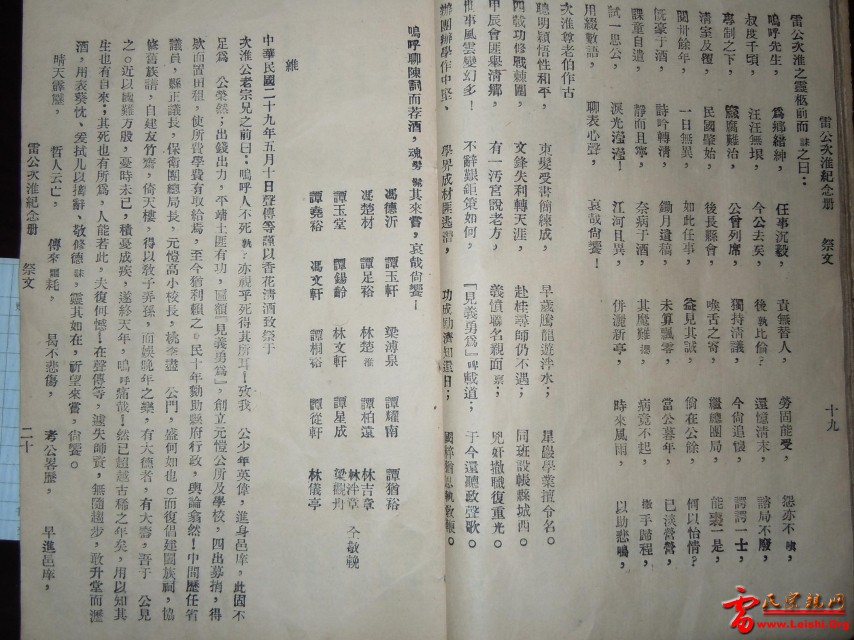 雷公次淮紀念册　祭文　十九
雷公次淮之靈柩前而誄之曰：
嗚呼先生，為鄉縉紳，任事沉毅，責無旁人，勞固能受，怨亦不嗔，
叔度千頃，汪汪無垠，今公去矣，後孰比倫？還憶清末，諮局不廢，
專制之下，黨腐難治，公曾列席，獨持清議，今尚追懷，諤諤一士，
清室及，民國肇始，後長縣會，唉舌之奇，繼總團局，能衷一是，
閱卅餘年，一日無異，如此任事，益見其誠，倘在公餘，何以怡情？
慨豪于酒，詩吟轉清，鋤月遺稿，未算飄零，當公暮年，已淡營營，
課童自遣，靜而且寧，奈病于酒，其魔難，病竟不起，撒手歸程，
試一思公，淚光瀅瀅！江河且異，併灑新亭，時來風雨，以助悲鳴，
用綴數語，聊表心聲，哀哉尚饗！
次淮尊老伯作古
聰明穎悟性和平，束髮受書簡練成，早歲騰龍遊泮水；星學業擅令名。
四載功修戰棘圍，文鋒失利轉天涯，赴桂尋師仍不遇，同班設帳縣城西。
甲辰會匪舉清鄉，有一汚宮說老方，義憤聯名親面禀；兇奸撤職復重光。
世事風雲變幻多！不辭艱鉅策如何，『見義勇為』碑載道；于今還聽政聲歌。
辦團辦學作中堅、學界成材匪逃潛，功成知還日；國粹猶思執敎鞭。
嗚呼聊陳詞而荐酒，魂髣髴其來嘗，哀哉尚饗！
馮德沂　譚玉軒　梁溥泉　譚耀南　譚猶裕
馮楚材　譚足裕　林楚淮　譚柏遠　林吉章
譚玉堂　譚錫齡　林文軒　譚星成　林泮章　梁觀丹　仝敬輓
譚堯裕　馮文軒　譚桐裕　譚從軒　林儀亭
維
中華民國二十九年五月十日聲傳等謹以香花清酒致祭于
次淮公老宗兄之前曰：嗚呼人不死，孰？亦視乎死得其所耳！致我　公少年英偉，進身邑庠，此固不
足為　公榮然；出錢出力，平靖土匪有功，區額『見義勇為』，創立元愷公所及學校，四出募捐，得
欵而置田租，使所費學費有取給焉，至今猶利賴之。民十年勷助縣府行政，輿論翕然！中間歷任省
議員，縣正議長，保衛團總局長，元愷高小校長，桃李盡　公門，盛何如也。而復倡建闔族祠，協
修舊族譜，自建友竹齋，倚天樓，得以敎子弄孫，而娛晚年之樂，有大德者，有大壽，吾于　公見
之。近以國難方殷，憂時未已，積憂成疾，遂終天年，嗚呼痛哉！然已超越古稀之年矣，用以知其
生也有自來；其死也有所為，人能若此，夫復何憾！在聲傳等，遽失師資，無隨趨步，敢升堂而灑
酒，用表葵忱、爰拭几以摛辭、敬修德誄，靈其如在，祈望來嘗，尙饗。
晴天霹靂，　哲人云亡，　傳來噩耗，　曷不悲傷，　考公畧歷，　早進邑庠，
雷公次淮紀念册　祭文　二十
雷氏宗親网
www.Leishi.Org